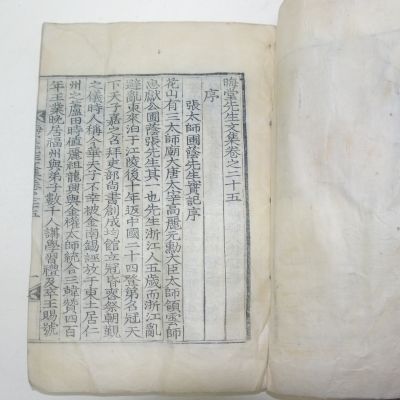 晦堂先生文集卷之二十五
序
張太師圃蔭先生實記序
花山有三太師廟大唐太宰高麗元勳大臣太師領雲師
忠獻公圃蔭張先生其一也先生浙江人五歲而浙江亂
避亂東來泊于江陵後十年返中國二十四登第名冠天
下天子嘉之召拜吏部尚書創成均館立冠昏喪祭朝覲
之儀時人稱今華天子不幸被金南錫誣故于東土居仁
州之蘆田時値麗祖龍興與金權太師統合三韓贊四百
年王業晩居福州與弟子數千人講學習禮及卒王賜號